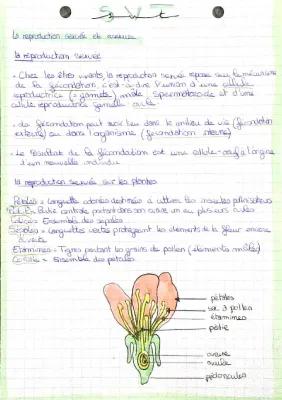 S.V.T
La reproduction sexuée et asexuée
la reproduction sexuée
• Chez les êtres vivants, la reproduction sexuée repose sur le mécanisme
de la fécondation, c'est-à-dire l'union d'une cellule
reproductrice (= gamète) mâle spermatozoïde et d'une
cellule reproductrice femelle : ovule
• La fécondation peut avoir lieu dans le milieu de vie (fécondation
externe) ou dans l'organisme (fécondation interne)
• Le Résultat de la fécondation est une cellule-oeuf à l'origine
d'un nouvelle individu
la reproduction sexuée chez les plantes
Pétales = Languette colorées destinées à attirer les insectes pollinisateurs
Pistil = Partie centrale portant dans son ovaire un ou plusieurs ovules
Calice = Ensemble des sépales
Sépales = Languettes vertes protégeant les éléments de la fleur encore
Etamines = Tiges portant les grains de pollen (éléments mâles)
Corolle = Ensemble des pétales
pétales
sac à pollen
étamines
pistil
ovaire
ovule
pédoncule